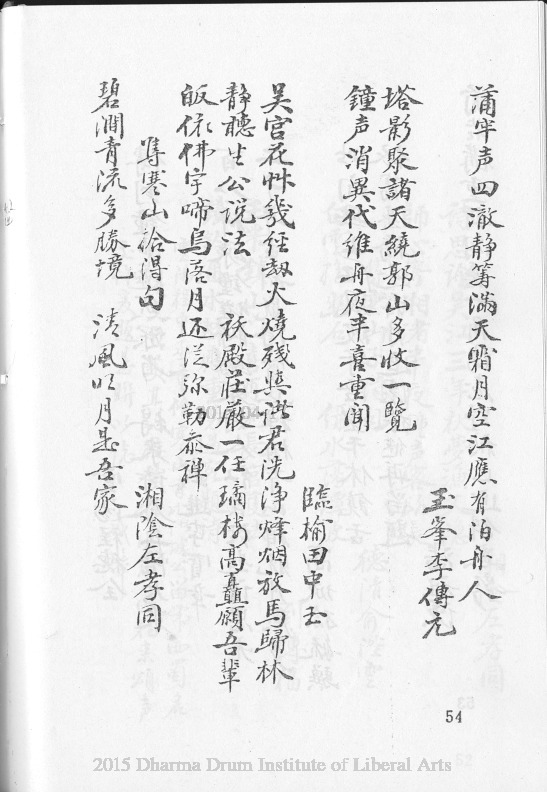 蒲牢声四澈静筹滿天霜月空江應有泊舟人
玉峯李傳元
塔影聚諸天繞郭山多收一覽
鐘声消異代維舟夜半喜重聞
臨榆田中玉
吴宫花艸幾經劫火燒殘與諸君洗淨烽烟放馬歸林
静聽生公说法 祇殿莊嚴一任璚樓高矗願吾輩
皈依佛宇啼烏落月还從弥勒叅禅
湘陰左孝同
寒山拾得句
碧澗青流多勝境 清風明月是吾家
54
2015 Dharma Drum Institute of Liberal Arts